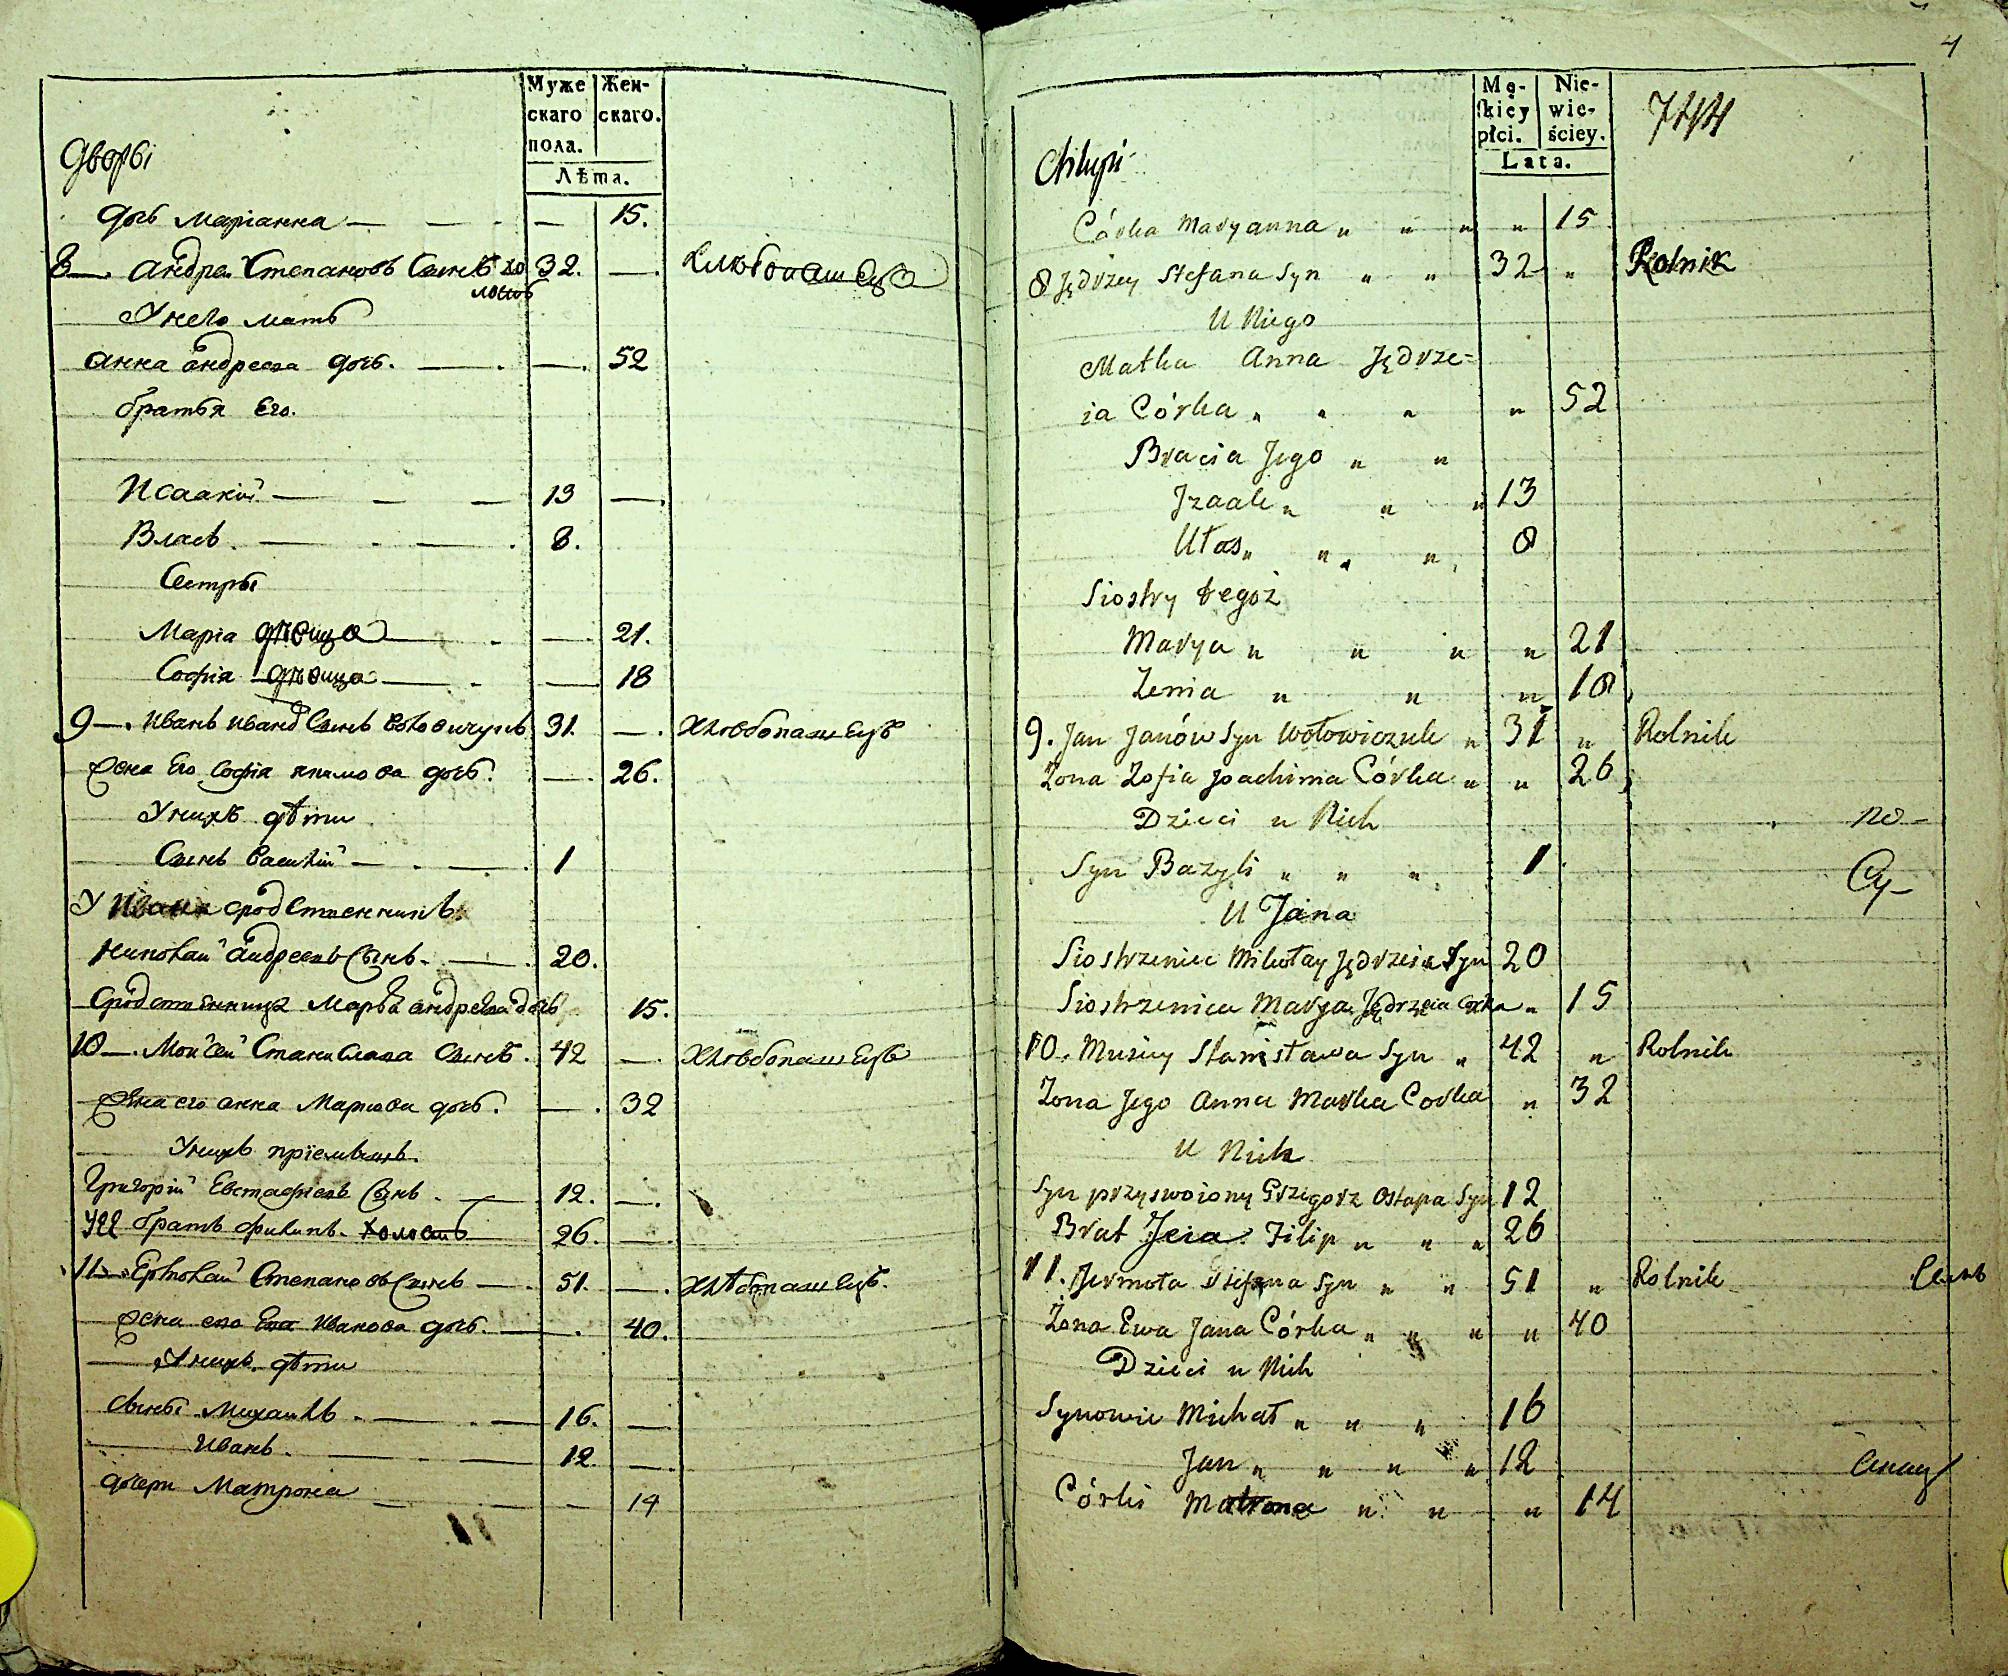 Дворы
Муже
скаго
пола.
Жен-
скаго.
Лѣта.
дочь Маріанна — — — 15.
8—. Андрей Степановъ Сынъ хо 32. —. Хлѣбопашецъ
лостъ
У него мать
Анна Андреева дочь. — . —. 52
братья Его.
Исаакій — — — 13 —.
Власъ. — — . 8.
Сестры
Маріа дѣвица — . — 21.
Софіа дѣвица — — 18
9—. Иванъ Иванов Сынъ Воловичукъ 31. —. Хлѣбопашецъ
Жена Его Софіа Якимова дочь. — 26.
У нихъ дѣти
Сынъ Василій — . — . 1
У Ивана сродственникъ
Николай Андреевъ Сынъ. — . 20.
Сродственница Марья Андреева дочь 15.
10—. Мойсей Станислава Сынъ. 42 —. Хлѣбопашецъ
Жена его Анна Маркова дочь. — . 32
У нихъ пріемышъ.
Григорій Евстафіевъ Сынъ. — 12. —.
Ее братъ Филипъ. холостъ 26. —
11—. Ермолай Степановъ Сынъ — . 51. —. Хлѣбопашецъ.
Жена его Ева Иванова дочь. — . 40.
У нихъ. дѣти
Сыны Михаилъ. — . — 16. —
Иванъ. — . — 12. —
дочери Матрона — — — 14
4
Chłupi
Mę-
skiey
płci.
Nie-
wie-
ściey.
Lata.
744
Córka Maryanna „ „ „ „ 15
8 Jędrzey Stefana Syn „ „ 32 „ Rolnik
U Niego
Matka Anna Jędrze-
ia Córka „ „ „ „ 52
Bracia Jego „ „
Izaak „ „ „ 13
Ułas „ „ „ 8
Siostry tegoż
Marya „ „ „ „ 21
Zenia „ „ „ 18
9. Jan Janów Syn Wołowiczuk „ 31 „ Rolnik
Żona Zofia Joachima Córka „ „ 26
Dzieci u Nich
по-
Syn Bazyli „ „ „ 1
Су-
U Jana
Siostrzeniec Mikołay Jędrzeia Syn 20
Siostrzenica Marya Jędrzeia Corka „ 15
10. Musiey Stanisława Syn „ 42 „ Rolnik
Żona Jego Anna Marka Corka „ 32
U Nich
Syn przyswoiony Grzegorz Ostapa Syn 12
Brat Jeia Filip „ „ „ 26
11. Jermoła Stefana Syn „ „ 51 „ Rolnik
Żona Ewa Jana Córka „ „ „ „ 40
Dzieci u Nich
Synowie Michał „ „ „ 16
Jan „ „ „ „ 12
Córki Matrona „ „ „ 14